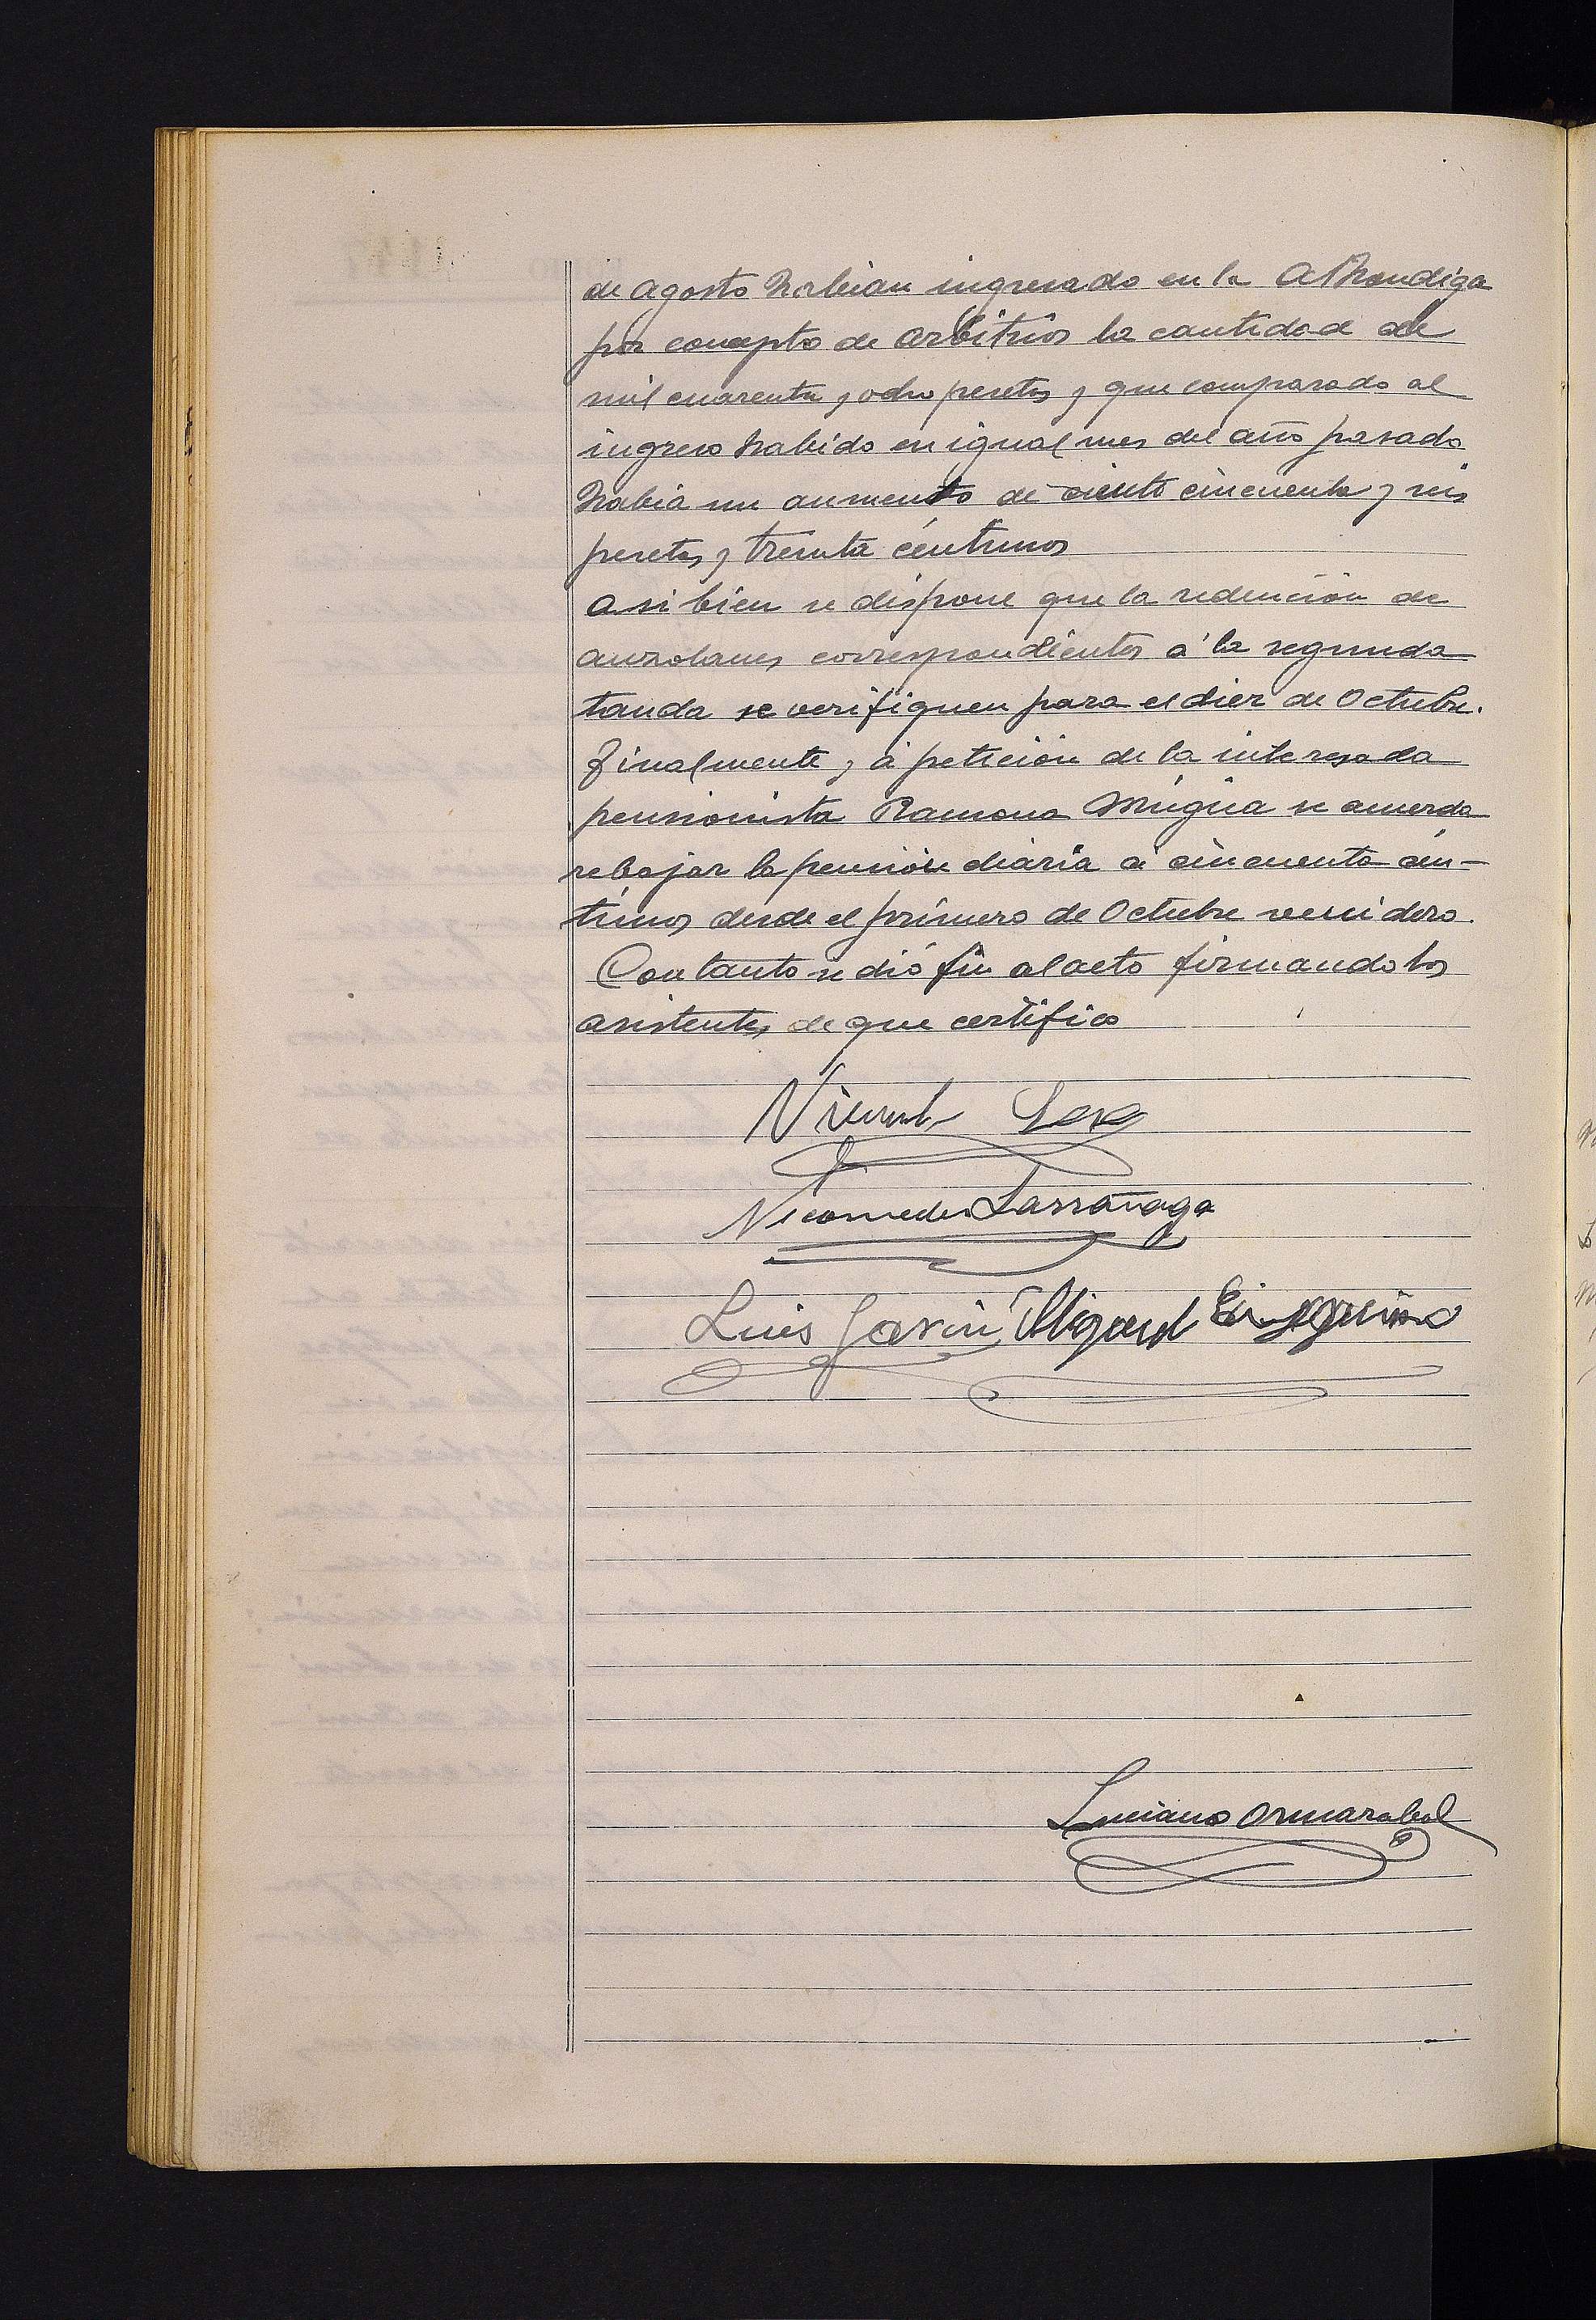 de Agosto habian ingresado en la Alhondiga
por concepto de arbitrios la cantidad de
mil cuarenta y ocho pesetas y que comparado al
ingreso habido en igual mes del año pasado
habia un aumento de ciento cincuenta y seis
pesetas y treinta céntimos
Asi bien se dispone que la redención de
auzolanes correspondientes á la segunda
tanda se verifiquen para el diez de Octubre.
Finalmente y á petición de la interesada
pensionista Ramona Múgica se acuerda
rebajar la pensión diaria á cincuenta cén-
timos desde el primero de Octubre venidero.
Con tanto se dió fin al acto firmando los
asistentes de que certifico
Vicente
Nicomedes Larrañaga
Luis Gavin Miguel
Luciano Ormazabal